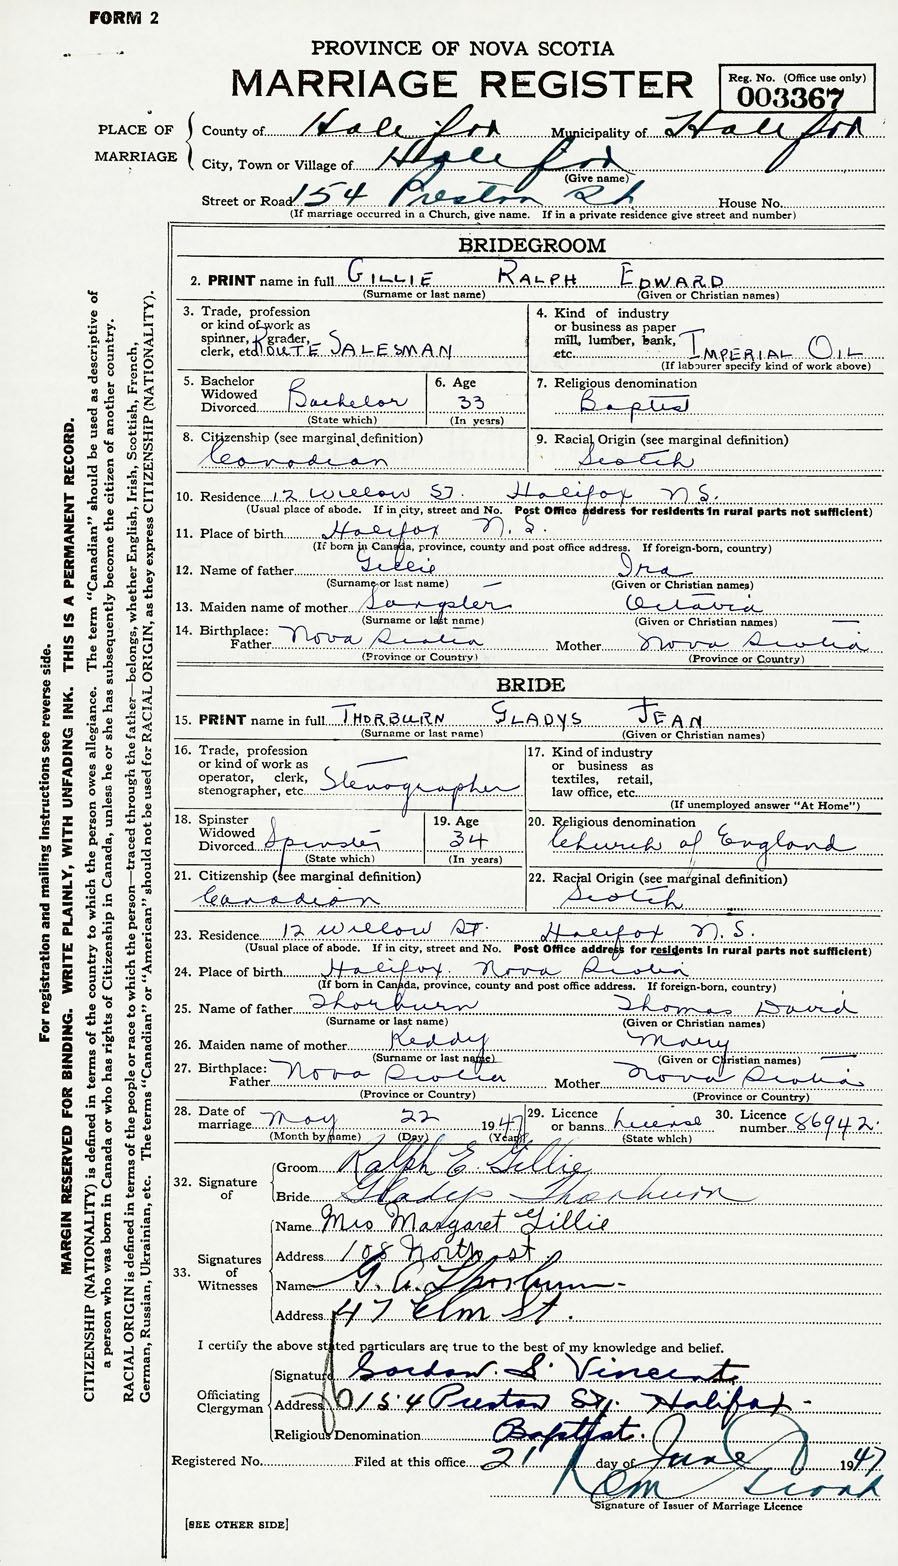 FORM 2
PROVINCE OF NOVA SCOTIA
MARRIAGE REGISTER
Reg. No. (Office use only)
003367
PLACE OF MARRIAGE
County of Halifax Municipality of Halifax
City, Town or Village of Halifax
(Give name)
Street or Road 154 Preston St House No.
(If marriage occurred in a Church, give name. If in a private residence give street and number)
BRIDEGROOM
2. PRINT name in full GILLIE RALPH EDWARD
(Surname or last name) (Given or Christian names)
3. Trade, profession or kind of work as spinner, grader, clerk, etc. ROUTE SALESMAN
4. Kind of industry or business as paper mill, lumber, bank, etc. IMPERIAL OIL
(If labourer specify kind of work above)
5. Bachelor Widowed Divorced Bachelor
(State which)
6. Age 33
(In years)
7. Religious denomination Baptist
8. Citizenship (see marginal definition) Canadian
9. Racial Origin (see marginal definition) Scotch
10. Residence 12 Willow St. Halifax N.S.
(Usual place of abode. If in city, street and No. Post Office address for residents in rural parts not sufficient)
11. Place of birth Halifax N.S.
(If born in Canada, province, county and post office address. If foreign-born, country)
12. Name of father Gillie Ira
(Surname or last name) (Given or Christian names)
13. Maiden name of mother Sangster Octavia
(Surname or last name) (Given or Christian names)
14. Birthplace: Father Nova Scotia Mother Nova Scotia
(Province or Country) (Province or Country)
BRIDE
15. PRINT name in full THORBURN GLADYS JEAN
(Surname or last name) (Given or Christian names)
16. Trade, profession or kind of work as operator, clerk, stenographer, etc. Stenographer
17. Kind of industry or business as textiles, retail, law office, etc.
(If unemployed answer "At Home")
18. Spinster Widowed Divorced Spinster
(State which)
19. Age 34
(In years)
20. Religious denomination Church of England
21. Citizenship (see marginal definition) Canadian
22. Racial Origin (see marginal definition) Scotch
23. Residence 12 Willow St. Halifax N.S.
(Usual place of abode. If in city, street and No. Post Office address for residents in rural parts not sufficient)
24. Place of birth Halifax. Nova Scotia
(If born in Canada, province, county and post office address. If foreign-born, country)
25. Name of father Thorburn Thomas David
(Surname or last name) (Given or Christian names)
26. Maiden name of mother Keddy Mary
(Surname or last name) (Given or Christian names)
27. Birthplace: Father Nova Scotia Mother Nova Scotia
(Province or Country) (Province or Country)
28. Date of marriage May 22 1947
(Month by name) (Day) (Year)
29. Licence or banns License
(State which)
30. Licence number 86942
32. Signature of
Groom Ralph E. Gillie
Bride Gladys Thorburn
33. Signatures of Witnesses
Name Mrs Margaret Gillie
Address 108 North st
Name G. A. Thorburn
Address 47 Elm St.
I certify the above stated particulars are true to the best of my knowledge and belief.
Officiating Clergyman
Signature Gordon S. Vincent
Address 154 Preston St. Halifax
Religious Denomination Baptist.
Registered No. Filed at this office 21 day of June 1947
Signature of Issuer of Marriage Licence
[SEE OTHER SIDE]
For registration and mailing instructions see reverse side.
MARGIN RESERVED FOR BINDING. WRITE PLAINLY, WITH UNFADING INK. THIS IS A PERMANENT RECORD.
CITIZENSHIP (NATIONALITY) is defined in terms of the country to which the person owes allegiance. The term "Canadian" should be used as descriptive of
a person who was born in Canada or who has rights of Citizenship in Canada, unless he or she has subsequently become the citizen of another country.
RACIAL ORIGIN is defined in terms of the people or race to which the person—traced through the father—belongs, whether English, Irish, Scottish, French,
German, Russian, Ukrainian, etc. The terms "Canadian" or "American" should not be used for RACIAL ORIGIN, as they express CITIZENSHIP (NATIONALITY).